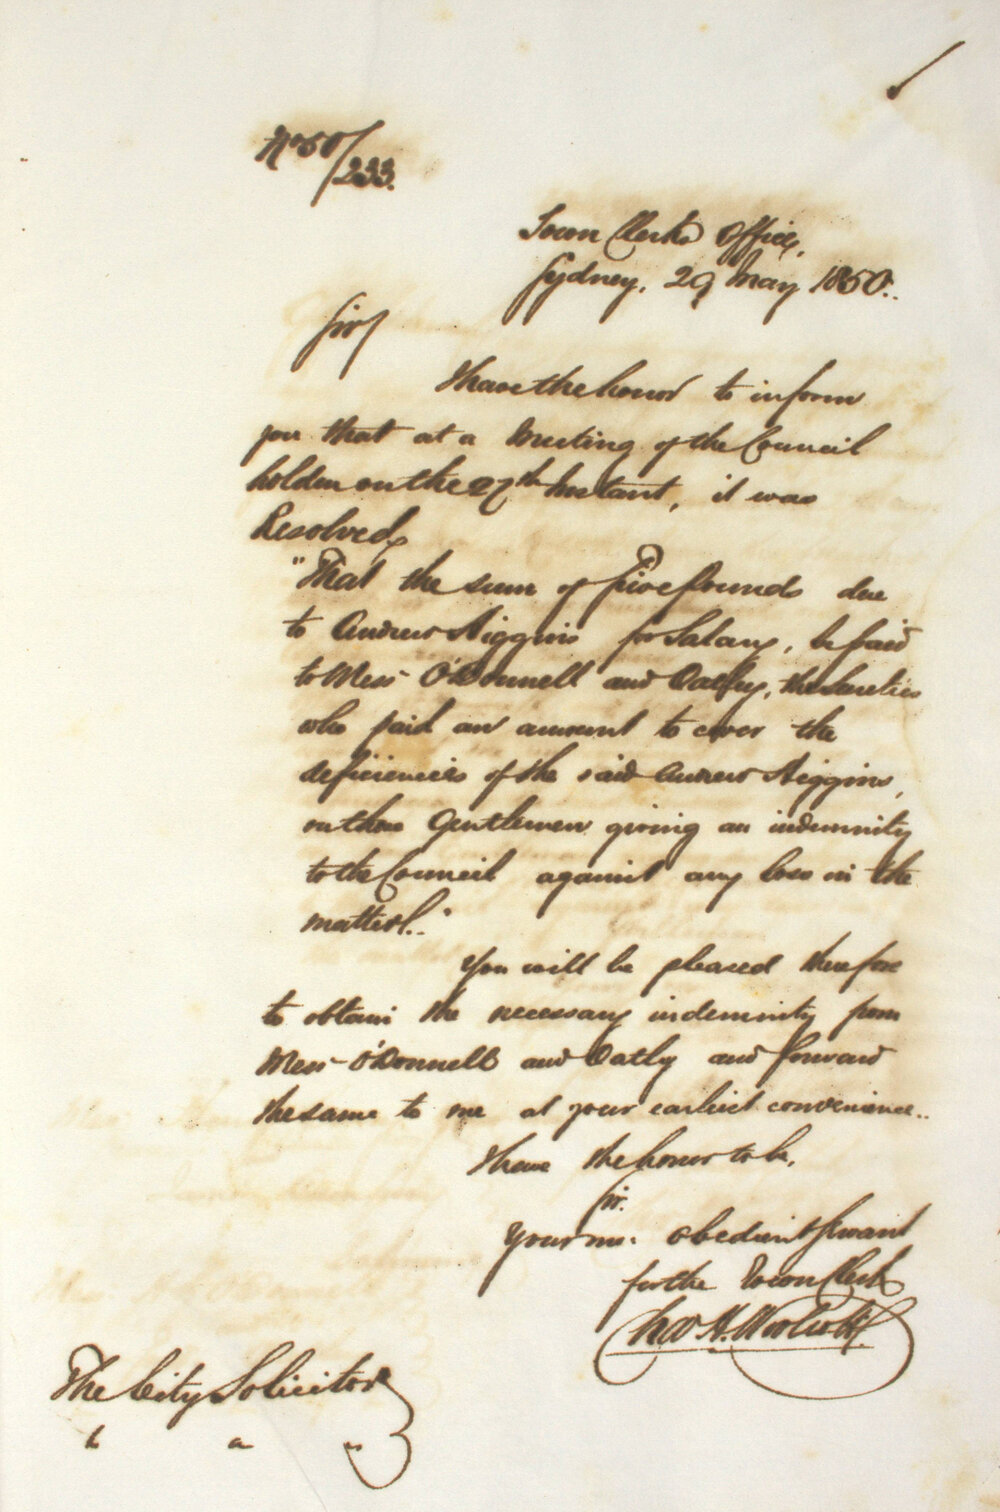 No 50/233.
Town Clerks Office,
Sydney, 29 May 1850..
Sir,
I have the honor to inform
you that at a Meeting of the Council
holden on the 27th Instant, it was
Resolved,
"That the sum of Five Pounds due
to Andrew Higgins for Salary, be paid
to Mess O'Donnell and Oatley, the Sureties
who paid an amount to cover the
deficiencies of the said Andrew Higgins,
on those Gentlemen giving an indemnity
to the Council against any loss in the
matter."
You will be pleased therefore
to obtain the necessary indemnity from
Mess O'Donnell and Oatly and forward
the same to me at your earliest convenience..
I have the honor to be,
Sir.
Your mo. obedient Servant
for the Town Clerk
The City Solicitor